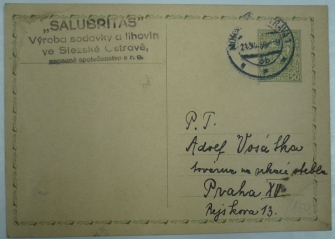 „SALUBRITAS"
Výroba sodovky a lihovin
ve Slezské Ostravě,
zapsané společenstvo s r. o.
P. T.
Adolf Vosátka
továrna na
Praha XII
Rejskova 13.
50